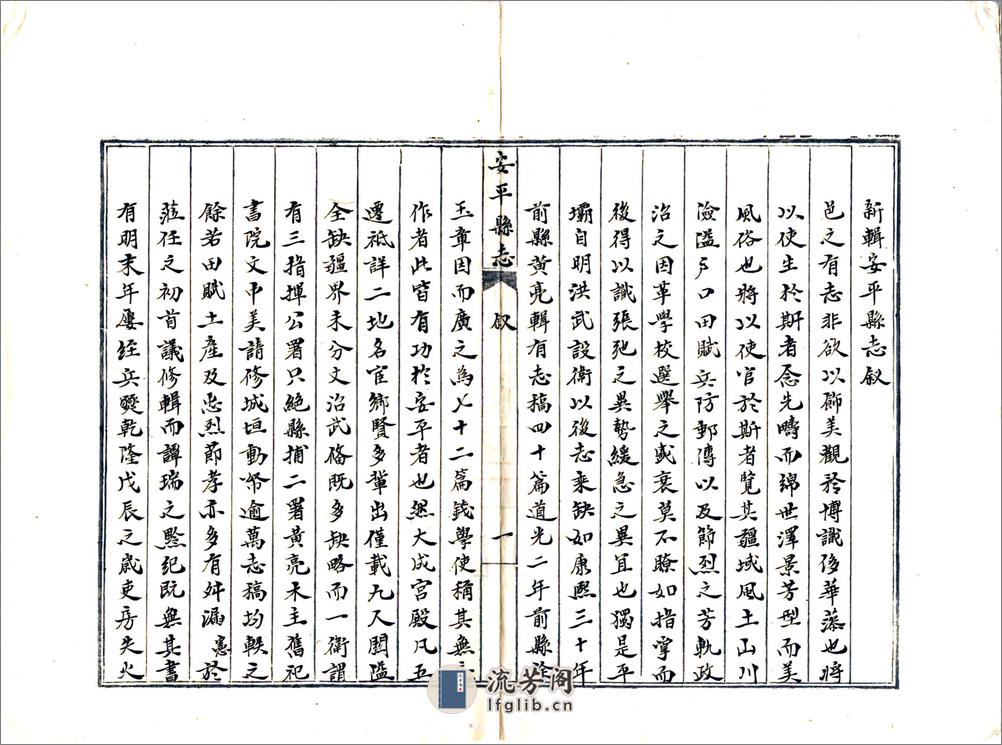 新輯安平縣志叙
邑之有志非欲以飾美觀矜博識侈華藻也將
以使生於斯者念先疇而綿世澤景芳型而美
風俗也將以使官於斯者覽其疆域風土山川
險溢戶口田賦兵防郵傳以及節烈之芳軌政
治之因革學校選舉之盛衰莫不瞭如指掌而
後得以識張弛之異勢緩急之異宜也獨是平
壩自明洪武設衛以後志乘缺如康熙三十年
前縣黃亮輯有志稿四十篇道光二年前縣
安平縣志
叙
一
玉章因而廣之為七十二篇錢學使稱其無
作者此皆有功於安平者也然大成宮殿凡五
遷祇詳二地名宦鄉賢多輩出僅載九人關隘
全缺疆界未分文治武備既多缺略而一衛謂
有三指揮公署只紀縣捕二署黃亮木主舊祀
書院文中美請修城垣動帑逾萬志稿均軼之
餘若田賦土產及忠烈節孝亦多有舛漏憲於
蒞任之初首議修輯而譚瑞之黔紀既無其書
有明末年屢經兵燹乾隆戊辰之歲吏房失火
流芳阁
lfglib.cn